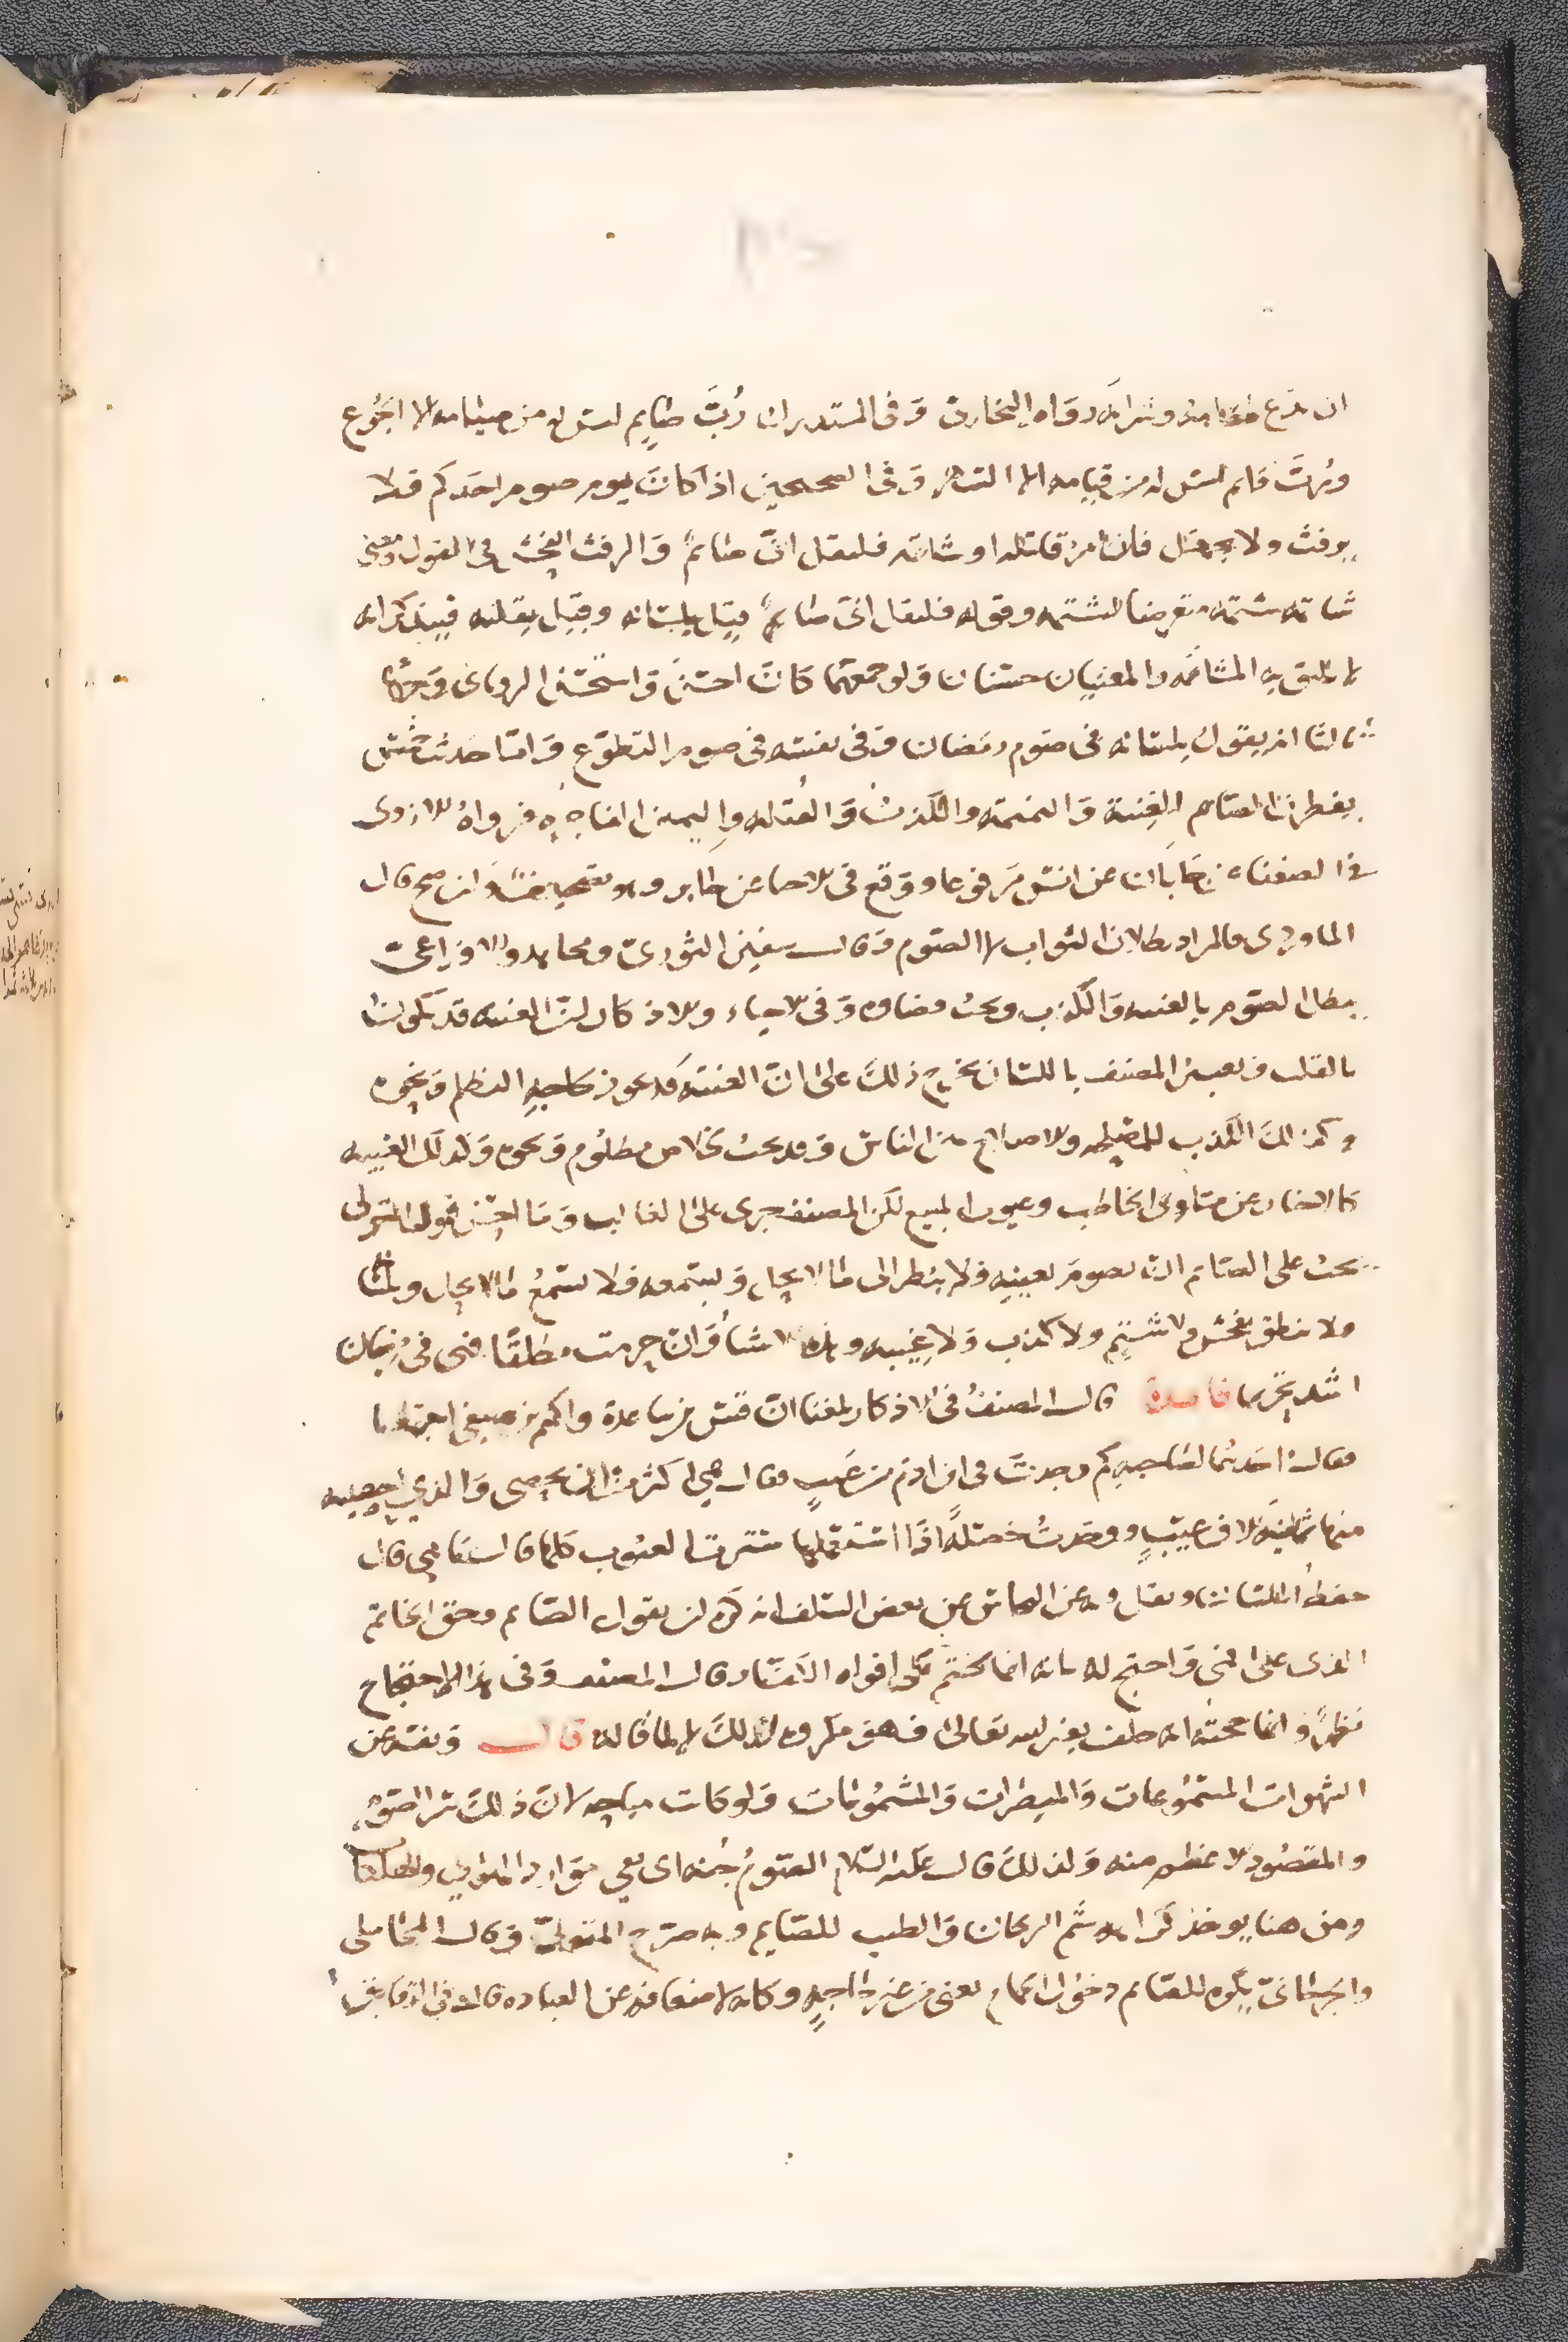 ان يدع طعامه وشرابه رواه البخاري وفي المستدرك رُبَّ صايم ليس له من صيامه الا الجوع
ورُبَّ قايم ليس له من قيامه الا السهر وفي الصحيحين اذا كان يوم صوم احدكم فلا
يرفث ولا يجهل فان امرؤ قاتله او شاتمه فليقل اني صايم والرفث الفحش في القول ومعنى
شاتمه شتمه متعرضا لشتمه وقوله فليقل اني صايم قيل بلسانه وقيل بقلبه فيتذكر انه
لا يليق به المشاتمه والمعنيان حسنان ولو جمعهما كان احسن واستحسن الروياني وجها
ثالثا انه يقول بلسانه في صوم رمضان وفي نفسه في صوم التطوع واما حديث خمس
يفطرن الصايم الغيبة والنميمة والكذب والقبلة واليمين الفاجرة فرواه الازدي
في الضعفاء من حديث عن انس مرفوعا ووقع في الاحيا عن جابر وهو تصحيف وان صح قال
الماوردي فالمراد بطلان الثواب لا الصوم وقال سفين الثوري ومجاهد والاوزاعي
يبطل الصوم بالغيبه والكذب ويجب قضاوه وفي الاحياء والاذكار ان الغيبه قد تكون
بالقلب وتعبير المصنف باللسان يخرج ذلك على ان الغيبة قد تجوز لحاجة التظلم ونحوه
وكذلك الكذب للمصلحه والاصلاح بين الناس وقد يجب لخلاص مظلوم ونحوه وكذلك الغيبه
كالاخبار عن مساوى الخاطب وعيوب المبيع لكن المصنف جرى على الغالب وما احسن قول المتولي
يجب على الصايم ان يصوم بعينيه فلا ينظر الى ما لا يحل وبسمعه فلا يسمع ما لا يحل وبلسانه
ولا ينطق بفحش ولا شتم ولا كذب ولا غيبه وهذه الاشيا وان حرمت مطلقا فهي في رمضان
اشد تحريما فايدة قال المصنف في الاذكار بلغنا ان قس بن ساعدة واكثم بن صيفي اجتمعا
فقال احدهما لصاحبه كم وجدت في ابن ادم من عيب فقال هي اكثر من ان تحصى والذي احصيته
منها ثمانية الاف عيب ووجدت خصلة اذا استعملها سترت العيوب كلها قال ما هي قال
حفظ اللسان ونقل فيه عن النحاس عن بعض السلف انه كره ان يقول الصايم وحق الخاتم
الذي على فمي واحتج له بانه انما يختم على افواه الكفار قال المصنف وفي هذا الاحتجاج
نظر وانما حجته انه حلف بغير الله تعالى فهو مكروه لذلك لا لما قاله قال ونفسه عن
الشهوات المسموعات والمبصرات والمشمومات ولو كانت مباحه لان ذلك سر الصوم
والمقصود الاعظم منه ولذلك قال عليه السلام الصوم جُنه اى يقي
ومن هنا يوخذ كراهه شم الريحان والطيب للصايم وبه صرح المتولي وقال المحاملي
والجرجاني يكره للصايم دخول الحمام يعنى من غير حاجة وكانه لاضعافه عن العباده قال